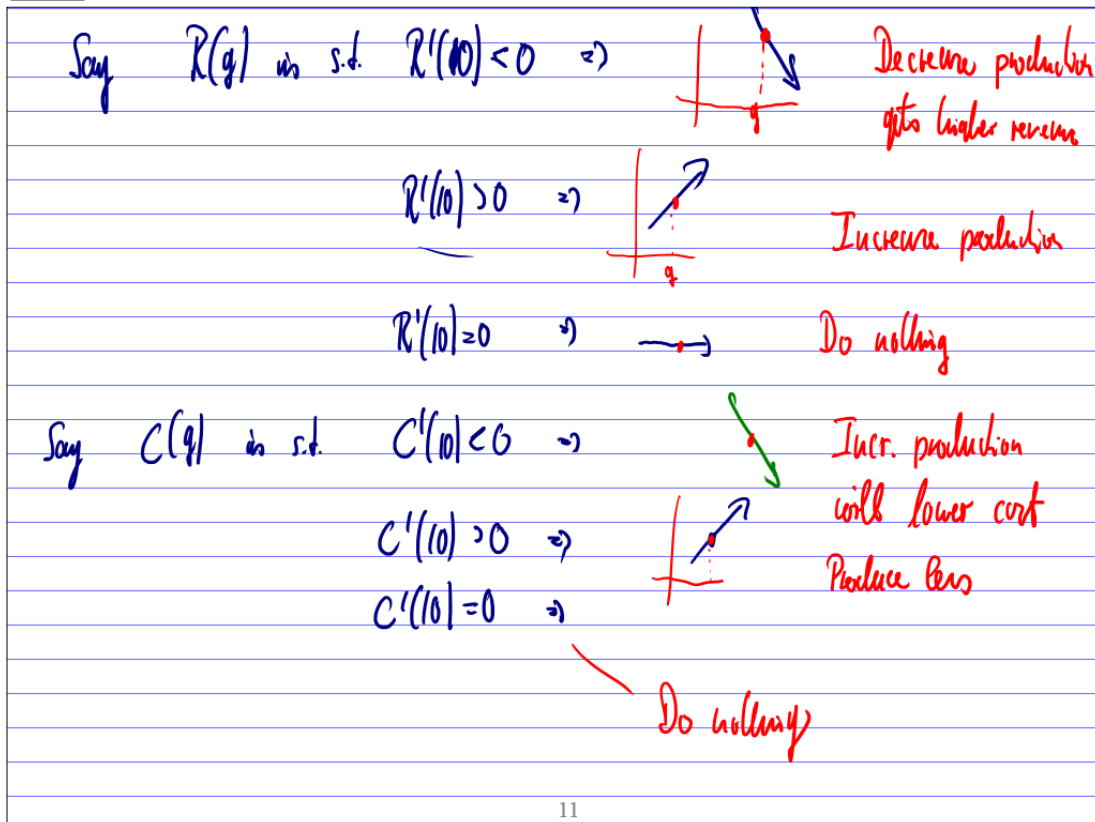 Say R(q) is s.t. R'(10) < 0 => Decrease production
q gets higher revenue
R'(10) > 0 => Increase production
q
R'(10) = 0 => Do nothing
Say C(q) is s.t. C'(10) < 0 => Incr. production
will lower cost
C'(10) > 0 => Produce less
C'(10) = 0 =>
Do nothing
11